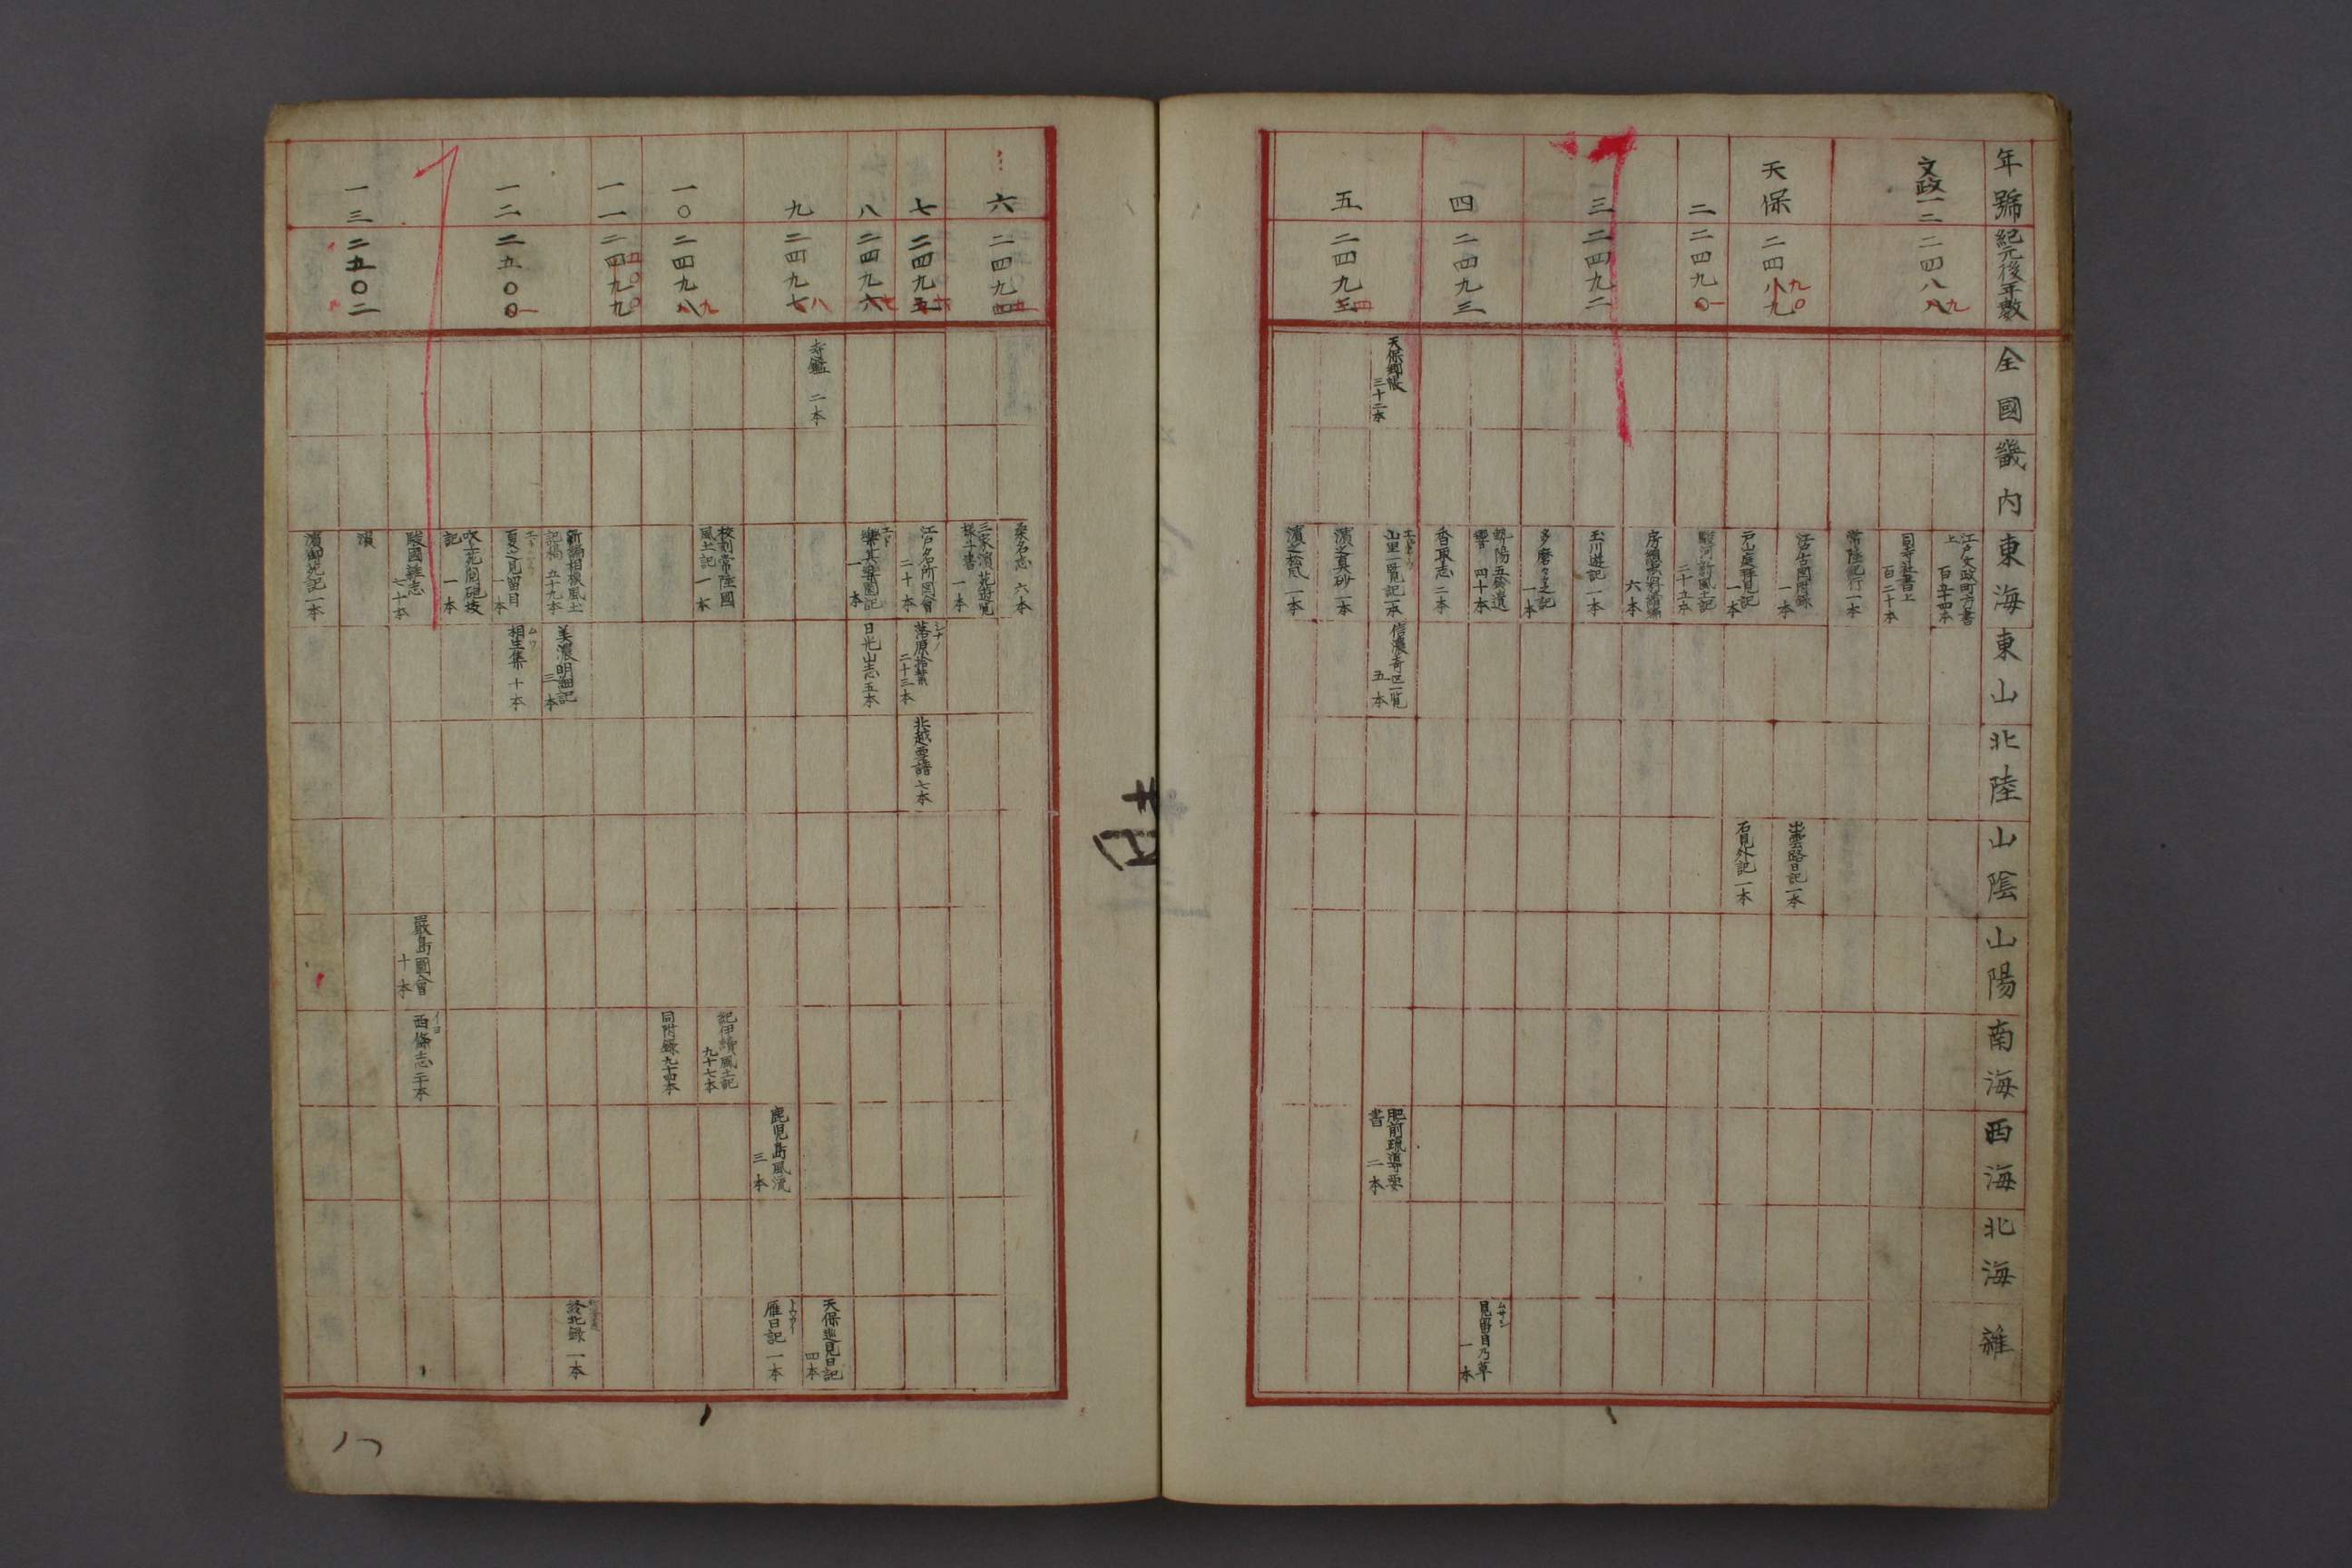 年號
紀元後年數
全國
畿内
東海
東山
北陸
山陰
山陽
南海
西海
北海
雜
文政一二
二四八八
九
江戸文政町方書上
百五十四本
同寺社書上
百二十本
常陸紀行一本
天保
二四八九
九〇
江戸古圖附録
一本
出雲路日記一本
戸山庭拜見記
一本
石見外記一本
二
二四九〇
一
駿河新風土記
二十五本
三
二四九二
六本
玉川遊記一本
多磨々之記
一本
四
二四九三
四十本
ムサシ
見留目乃草
一本
香取志二本
五
二四九五
四
天保郷帳
三十二本
山里一覽記一本
信濃奇区一覽
五本
肥前現導要書
二本
濱之真砂一本
濱之松風一本
六
二四九四
五
桑名志 六本
三家濱苑遊覽
一本
七
二四九五
六
江戸名所圖會
二十本
シナノ
落原拾葉
二十三本
北越雪譜 七本
八
二四九六
七
エド
樂其樂園記
一本
日光山志五本
九
二四九七
八
寺鑑 二本
天保巡見日記
四本
雁日記一本
鹿児島風流
三本
一〇
二四九八
九
校刻常陸國風土記
一本
紀伊續風土記
九十七本
同附録九十四本
一一
二四九九
五〇〇
一二
二五〇〇
一
新編相模風土記稿
五十九本
美濃明細記
三本
一本
夏之見留目
一本
相生集 十本
吹上苑圖砲技記
一本
一三
二五〇二
駿國雜志
七十本
嚴島圖會
十本
イヨ
西條志二十本
濱
濱御苑記一本